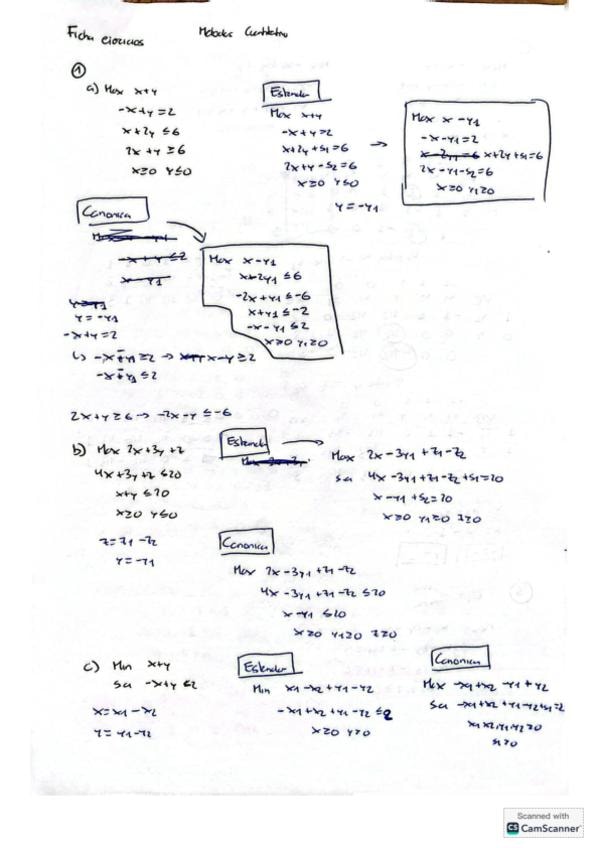 Ficha ejercicios Métodos Cuantitativos
①
a) Max x+y
-x+y=2
x+2y≤6
2x+y≥6
x≥0 y≤0
Estandar
Max x+y
-x+y=2
x+2y+s1=6
2x+y-s2=6
x≥0 y≤0
y=-y1
→
Max x-y1
-x-y1=2
x+2y+s1=6
2x-y1-s2=6
x≥0 y1≥0
Canonica
y=-y1
-x+y=2
Max x-y1
x+2y1≤6
-2x+y1≤-6
x+y1≤-2
-x-y1≤2
x≥0 y1≥0
-x+y1≥2 → x-y≥2
-x+y1≤2
2x+y≥6 → -2x-y≤-6
b) Max 2x+3y+z
4x+3y+z≤20
x+y≤20
x≥0 y≤0
z=z1-z2
y=-y1
Estandar
Max 2x-3y1+z1-z2
sa 4x-3y1+z1-z2+s1=20
x-y1+s2=20
x≥0 y1≥0 z≥0
Canonica
Max 2x-3y1+z1-z2
4x-3y1+z1-z2≤20
x-y1≤20
x≥0 y1≥0 z≥0
c) Min x+y
sa -x+y≤2
x=x1-x2
y=y1-y2
Estandar
Min x1-x2+y1-y2
-x1+x2+y1-y2≤2
x≥0 y≥0
Canonica
Max -x1+x2-y1+y2
sa -x1+x2+y1-y2+s1=2
x1 x2, y1 y2≥0
s1≥0
Scanned with
CS CamScanner